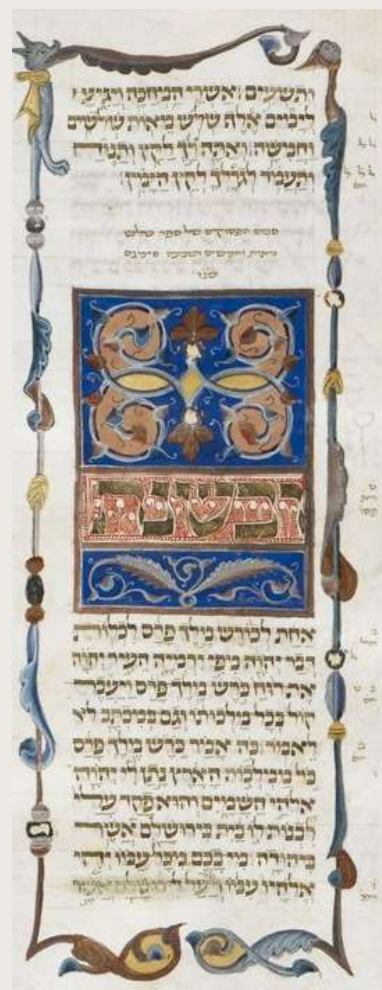 ותשעים אשרי המחכה ויגיע
לימים אלף שלש מאות שלשים
וחמשה ואתה לך לקץ ותנוח
ותעמד לגרלך לקץ הימין
סכום הפסוקים של ספר שלש
מאות וחמשים ושבעה סימנם
ובשנת
אחת לכורש מלך פרס לכלות
דבר יהוה מפי ירמיה העיר יהוה
את רוח כרש מלך פרס ויעבר
קול בכל מלכותו וגם במכתב לא
לאמר כה אמר כרש מלך פרס
כל ממלכות הארץ נתן לי יהוה
אלהי השמים והוא פקד עלי
לבנות לו בית בירושלם אשר
ביהודה מי בכם מכל עמו יהי
אלהיו עמו ויעל לירושלם אשר